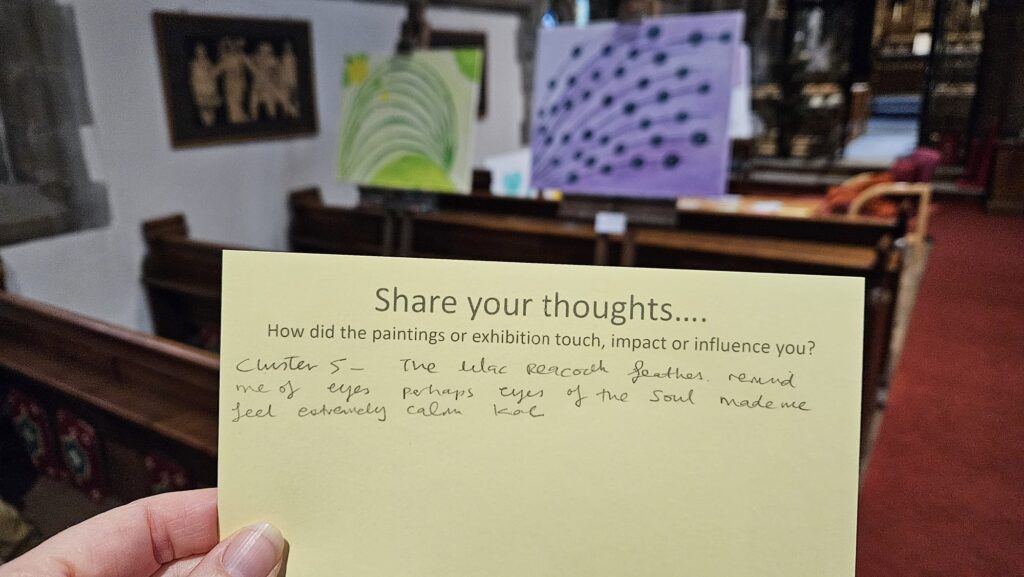 Share your thoughts....
How did the paintings or exhibition touch, impact or influence you?
Cluster 5 - The lilac peacock feathers remind
me of eyes perhaps eyes of the soul made me
feel extremely calm